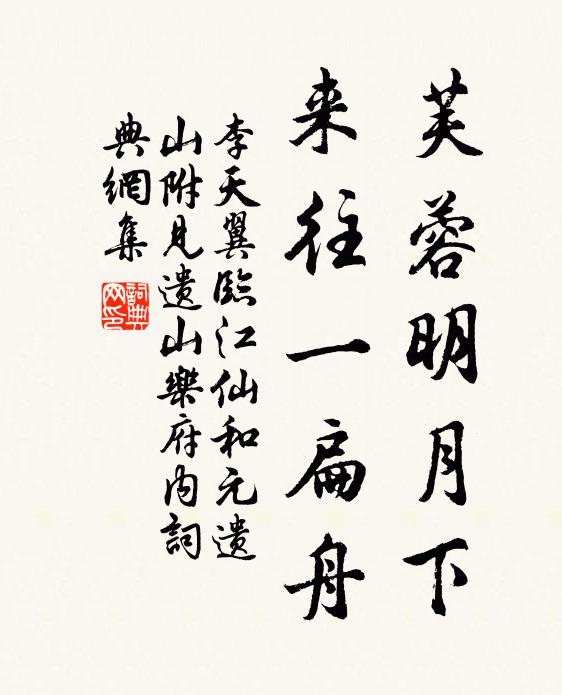 芙蓉明月下
来往一扁舟
李天翼臨江仙和元遺
山附見遺山樂府内詞
典網集
詞典
网印